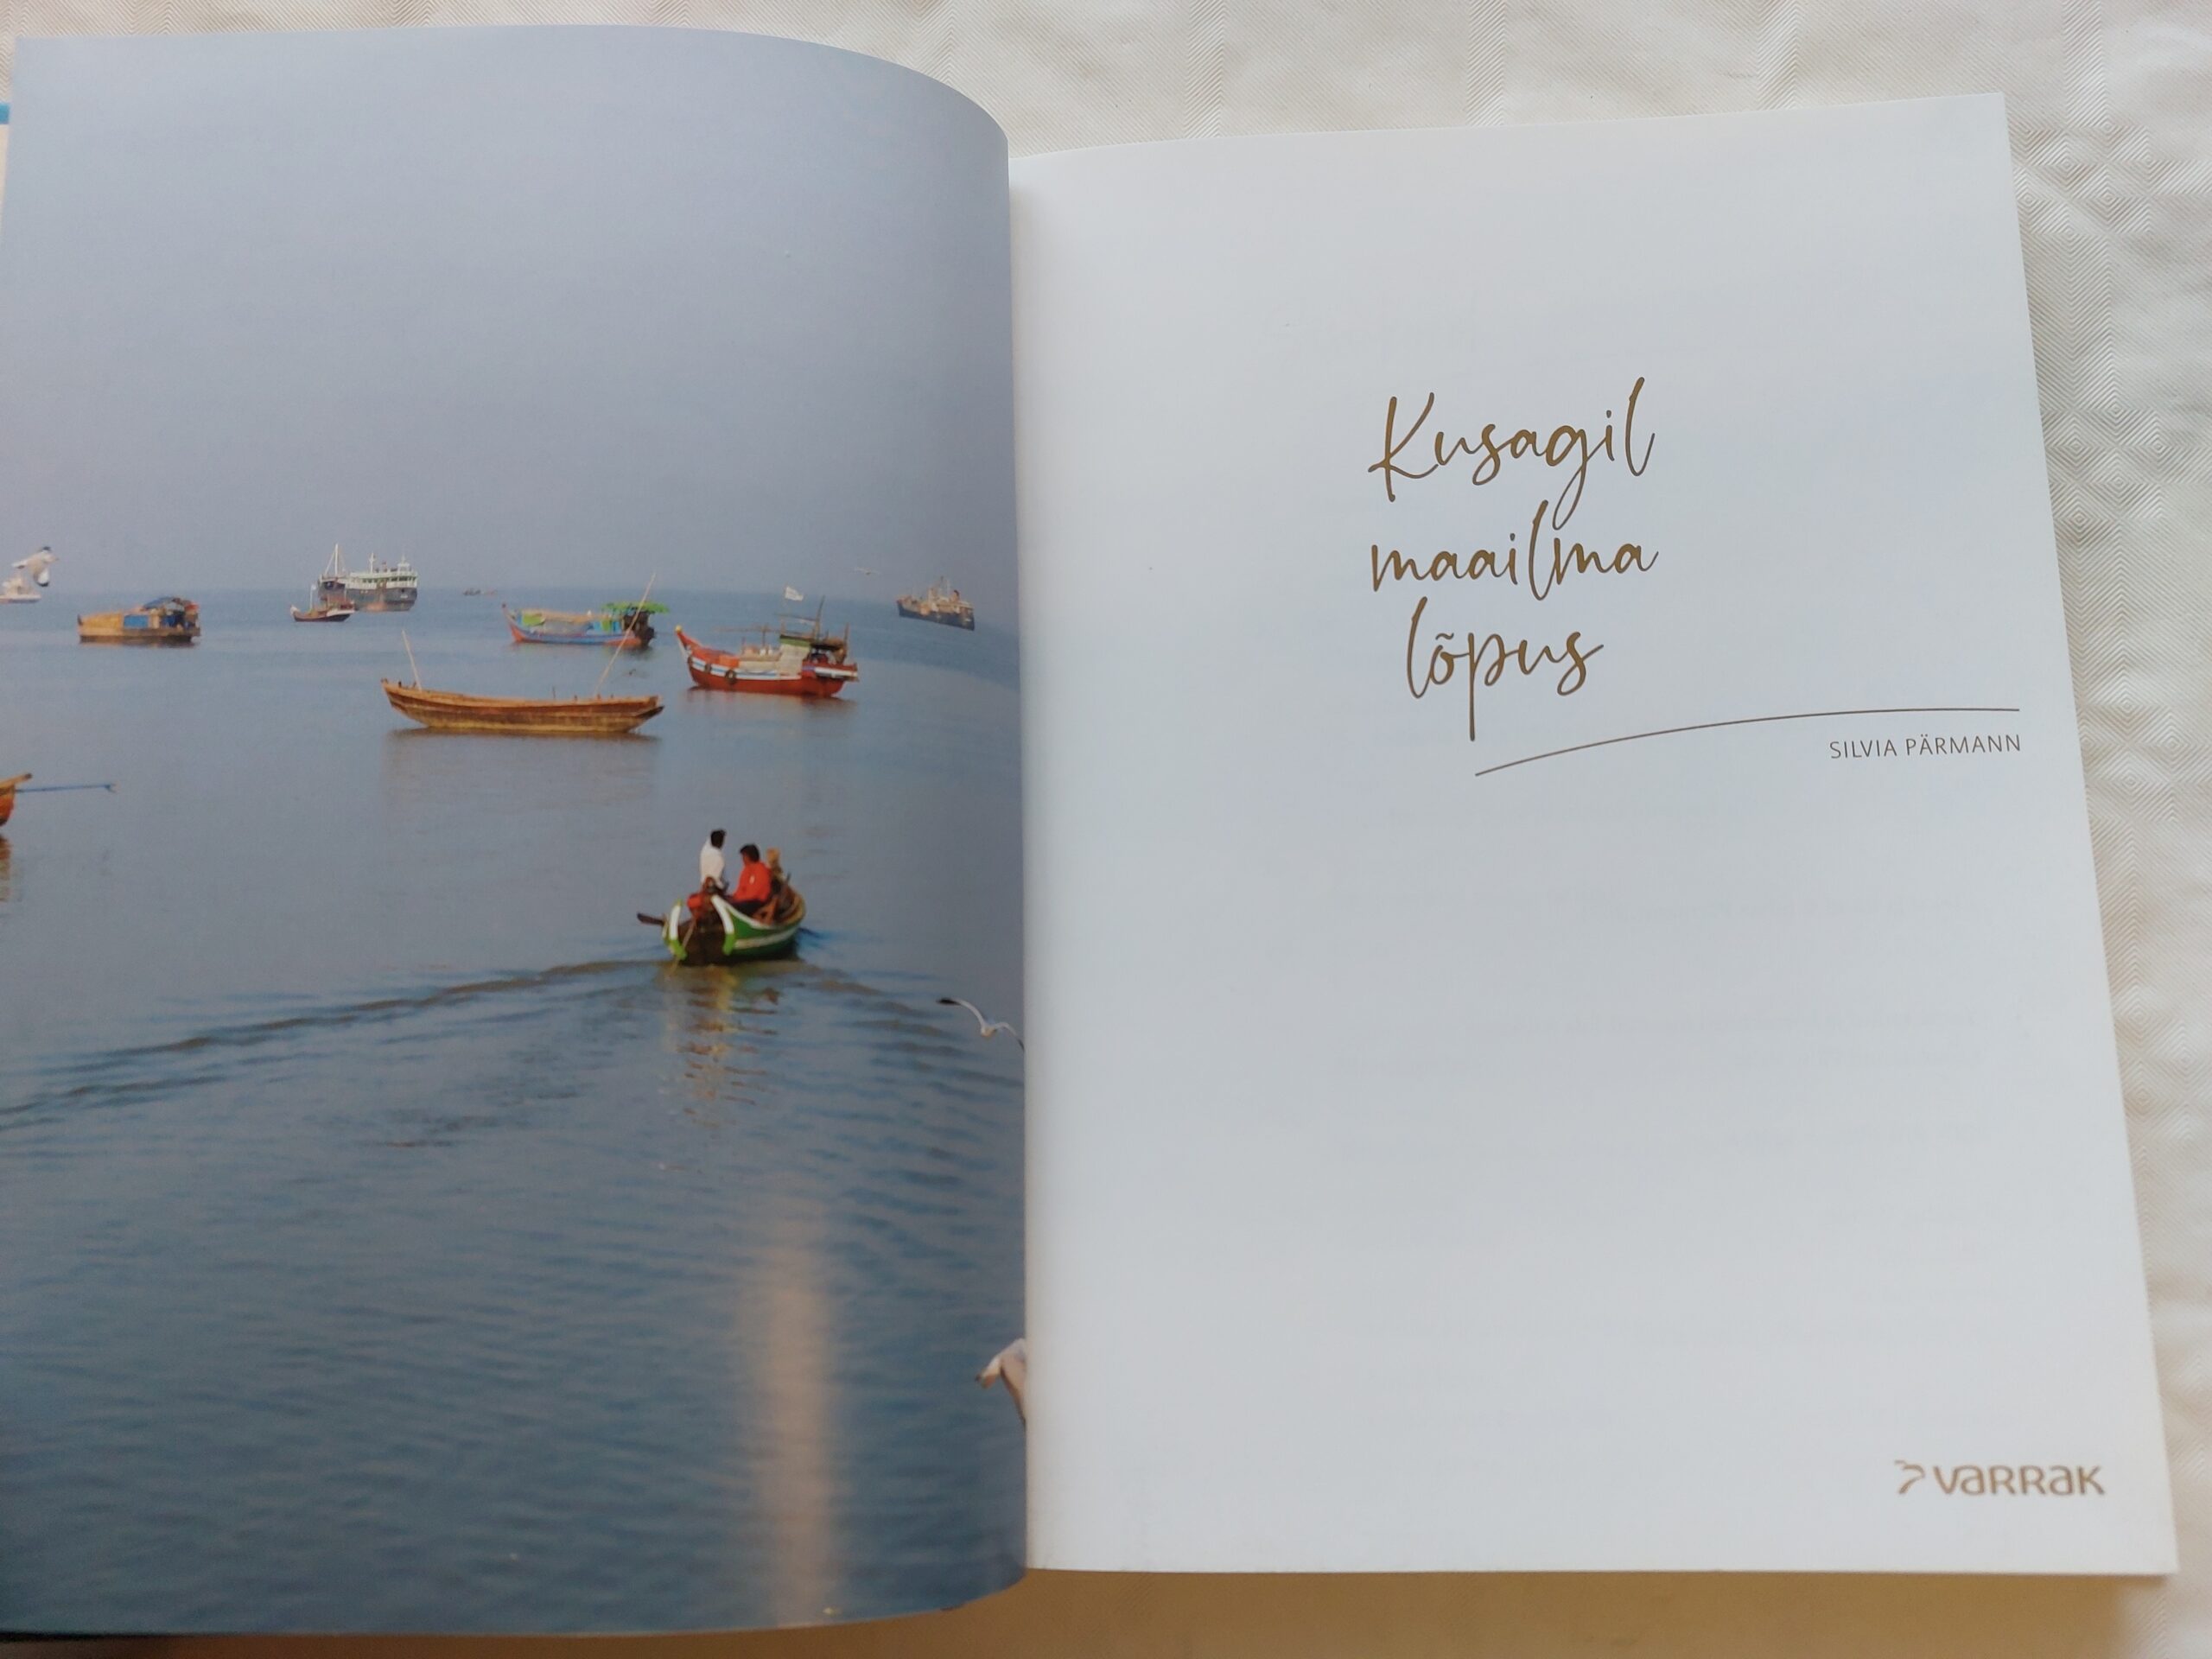 Kusagil
maailma
lõpus
SILVIA PÄRMANN
VARRAK